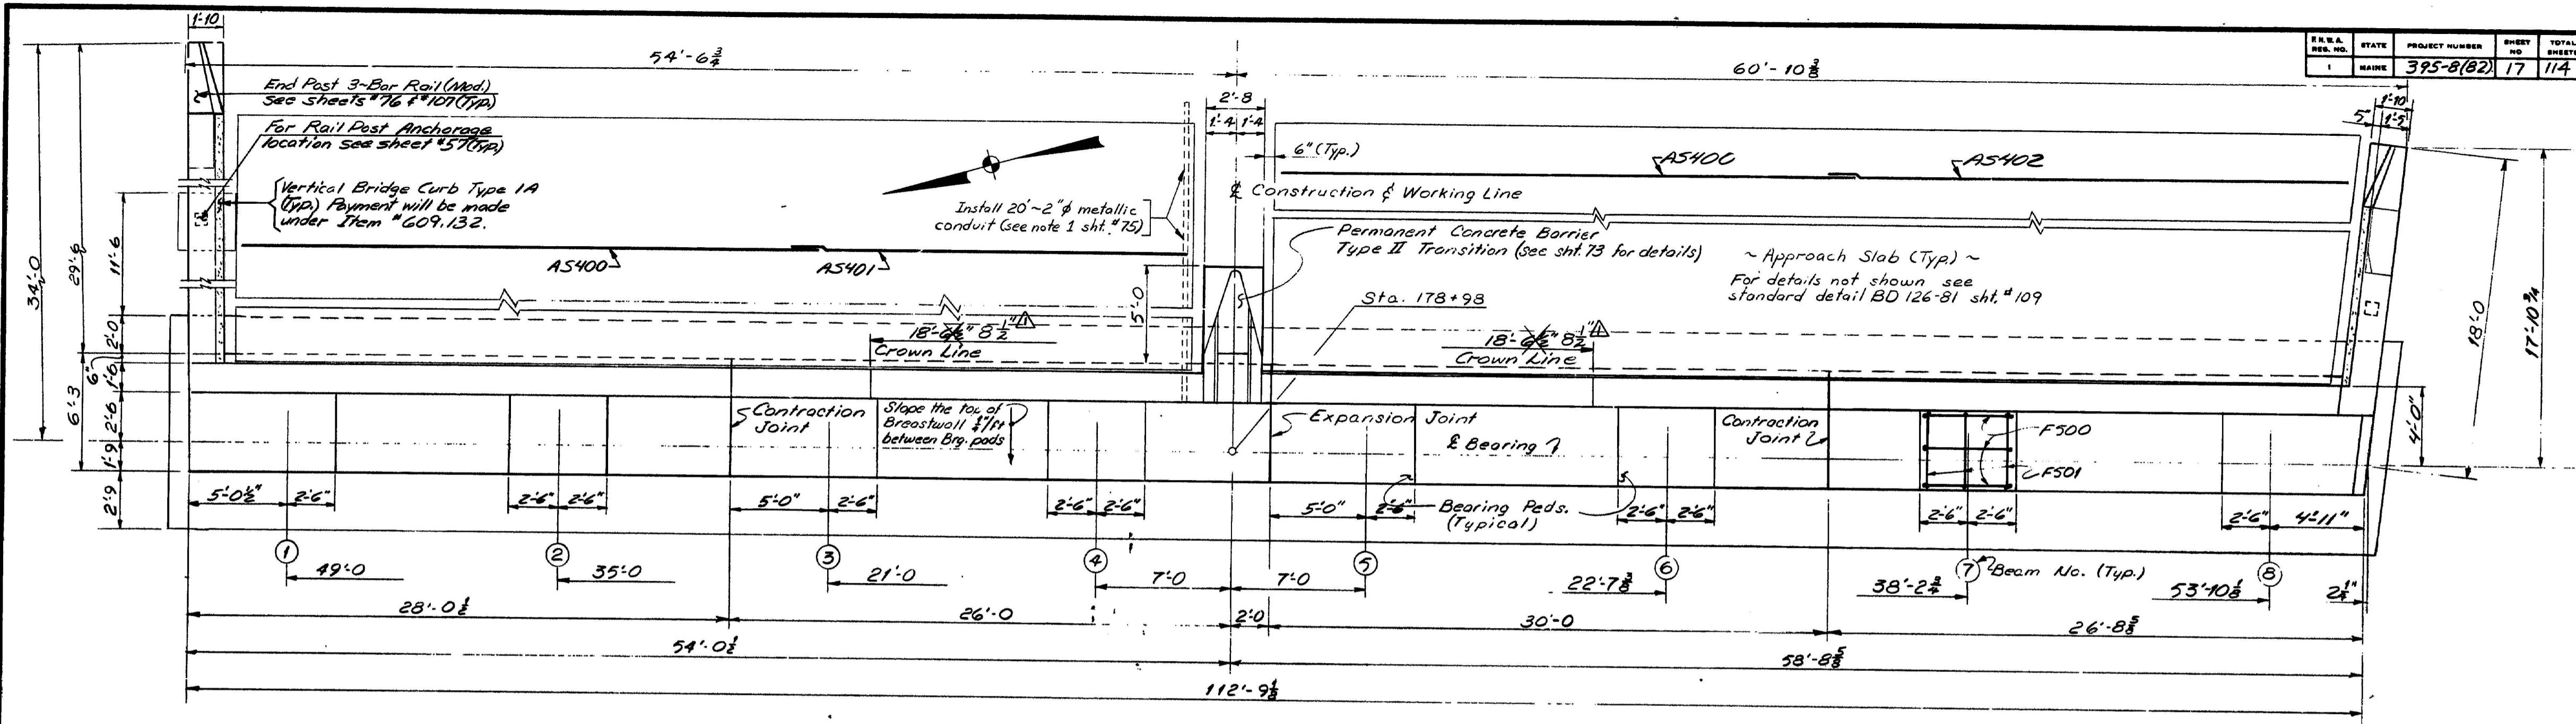 F.H.W.A. REG. NO. STATE PROJECT NUMBER SHEET NO TOTAL SHEETS
1 MAINE 395-8(82) 17 114
1'-10
54'-6 3/4
60'-10 3/8
2'-8
1'-4 1'-4
1'-10
5" 1'-5
End Post 3~Bar Rail (Mod.)
See sheets #76 & #107 (Typ.)
For Rail Post Anchorage
location see sheet #57 (Typ.)
Vertical Bridge Curb Type 1A
(Typ.) Payment will be made
under Item #609.132.
Install 20'~2"φ metallic
conduit (see note 1 sht. #75)
6" (Typ.)
AS400
AS402
℄ Construction & Working Line
Permanent Concrete Barrier
Type II Transition (see sht. 73 for details)
~ Approach Slab (Typ.) ~
For details not shown see
standard detail BD 126-81 sht. #109
AS400
AS401
Sta. 178+98
34'-0
29'-9
11'-6
2'-0
6"
1'-6
6'-3
2'-6
1'-9
2'-9
5'-0
18'-6 1/2" 8 1/2" 1
Crown Line
18'-6 1/2" 8 1/2" 1
Crown Line
18'-0
17'-10 3/4
4'-0"
Contraction
Joint
Slope the top of
Breastwall 1/4"/ft
between Brg. pads
Expansion Joint
℄ Bearing
Contraction
Joint
F500
F501
Bearing Peds.
(Typical)
5'-0 1/2" 2'-6" 2'-6" 2'-6" 5'-0" 2'-6" 2'-6" 2'-6" 5'-0" 2'-6" 2'-6" 2'-6" 2'-6" 2'-6" 2'-6" 4'-11"
1 2 3 4 5 6 7 8
Beam No. (Typ.)
49'-0 35'-0 21'-0 7'-0 7'-0 22'-7 3/8 38'-2 3/4 53'-10 1/8 2 1/4"
28'-0 1/2 26'-0 2'-0 30'-0 26'-8 5/8
54'-0 1/2 58'-8 5/8
112'-9 1/8